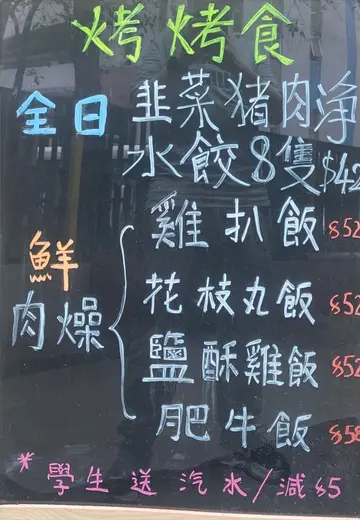 烤烤食
全日 韭菜猪肉淨
水餃8隻$42
雞扒飯 $52
鮮 花枝丸飯 $52
肉燥 鹽酥雞飯 $52
肥牛飯 $58
*學生送汽水/減$5